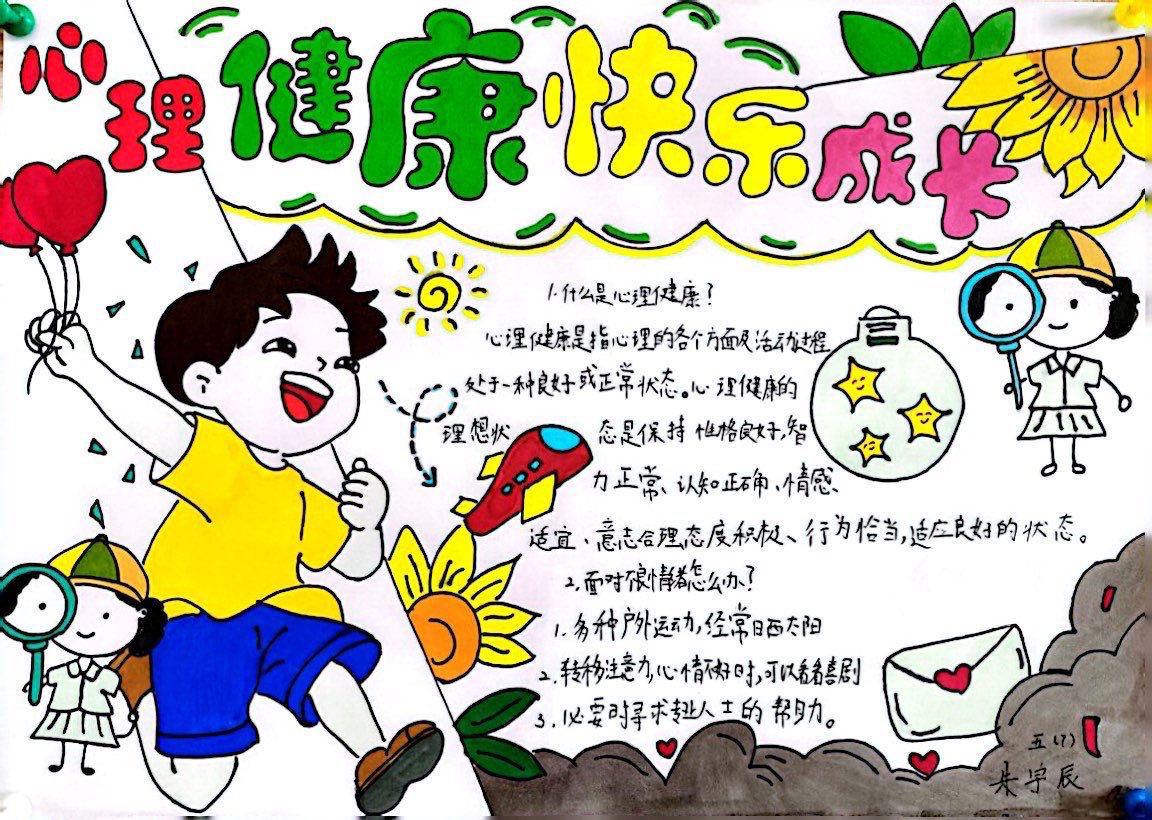 心理健康快乐成长
1.什么是心理健康?
心理健康是指心理的各个方面及活动过程
处于一种良好或正常状态。心理健康的
理想状态是保持性格良好,智
力正常、认知正确、情感、
适宜、意志合理,态度积极、行为恰当,适应良好的状态。
2.面对很情绪怎么办?
1.多种户外运动,经常日西太阳
2.转移注意力,心情不好时,可以看看喜剧
3.必要时寻求专业人士的帮助。
五(7)
朱宇辰